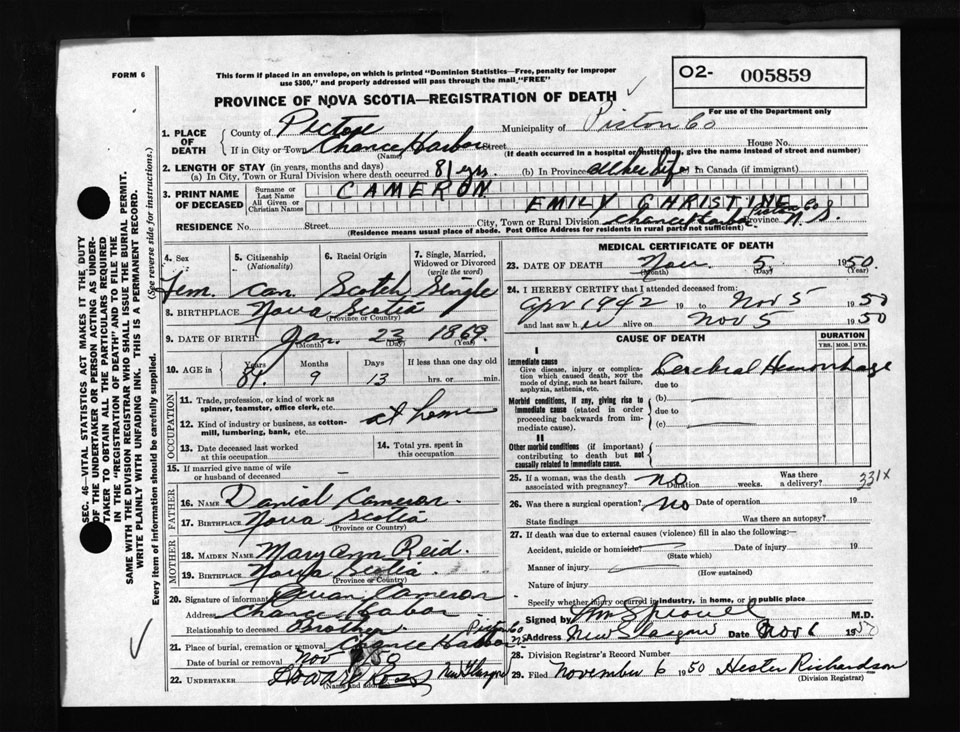 FORM 6
This form if placed in an envelope, on which is printed "Dominion Statistics—Free, penalty for improper
use $300," and properly addressed will pass through the mail "FREE"
PROVINCE OF NOVA SCOTIA—REGISTRATION OF DEATH
O2- 005859
For use of the Department only
1. PLACE OF DEATH
County of Pictou Municipality of Pictou Co
If in City or Town Chance Harbor Street House No.
(Name) (If death occurred in a hospital or institution, give the name instead of street and number)
2. LENGTH OF STAY (in years, months and days)
(a) In City, Town or Rural Division where death occurred 81 yrs. (b) In Province all her life (c) In Canada (if immigrant)
3. PRINT NAME OF DECEASED
Surname or Last Name CAMERON
All Given or Christian Names EMILY CHRISTINE
RESIDENCE No. Street City, Town or Rural Division Chance Harbor Pictou Co Province N. S.
(Residence means usual place of abode. Post Office Address for residents in rural parts not sufficient)
4. Sex
Fem.
5. Citizenship (Nationality)
Can.
6. Racial Origin
Scotch
7. Single, Married, Widowed or Divorced (write the word)
Single
8. BIRTHPLACE Nova Scotia
(Province or Country)
9. DATE OF BIRTH Jan. 23 1869
(Month) (Day) (Year)
10. AGE in Years Months Days If less than one day old
81. 9 13 hrs. or min.
OCCUPATION
11. Trade, profession, or kind of work as spinner, teamster, office clerk, etc.
12. Kind of industry or business, as cotton-mill, lumbering, bank, etc.
at home
13. Date deceased last worked at this occupation
14. Total yrs. spent in this occupation
15. If married give name of wife or husband of deceased —
FATHER
16. NAME Daniel Cameron
17. BIRTHPLACE Nova Scotia
(Province or Country)
MOTHER
18. MAIDEN NAME Mary Ann Reid.
19. BIRTHPLACE Nova Scotia.
(Province or Country)
20. Signature of informant Cameron
Address Chance Harbor
Relationship to deceased Brother
21. Place of burial, cremation or removal Chance Harbor Pictou Co NS
Date of burial or removal Nov /50
22. UNDERTAKER Ross New Glasgow
(Name and address)
MEDICAL CERTIFICATE OF DEATH
23. DATE OF DEATH Nov. 5. 1950.
(Month) (Day) (Year)
24. I HEREBY CERTIFY that I attended deceased from:
Apr 1942 19 to Nov 5 1950
and last saw her alive on Nov 5 1950
CAUSE OF DEATH
DURATION
YRS. MOS. DYS.
I
Immediate cause
Give disease, injury or complication which caused death, not the mode of dying, such as heart failure, asphyxia, asthenia, etc.
Cerebral Hemorrhage
due to
Morbid conditions, if any, giving rise to immediate cause (stated in order proceeding backwards from immediate cause).
(b)
due to
(c)
II
Other morbid conditions (if important) contributing to death but not causally related to immediate cause.
25. If a woman, was the death associated with pregnancy? no Duration weeks. Was there a delivery?
331X
26. Was there a surgical operation? no Date of operation 19
State findings Was there an autopsy?
27. If death was due to external causes (violence) fill in also the following:—
Accident, suicide or homicide? Date of injury 19
(State which)
Manner of injury
(How sustained)
Nature of injury
Specify whether injury occurred in industry, in home, or in public place
Signed by M.D.
Address New Glasgow Date Nov 6 1950
28. Division Registrar's Record Number
29. Filed November 6 1950 Hester Richardson
(Division Registrar)
SEC. 46—VITAL STATISTICS ACT MAKES IT THE DUTY
OF THE UNDERTAKER OR PERSON ACTING AS UNDER-
TAKER TO OBTAIN ALL THE PARTICULARS REQUIRED
IN THE "REGISTRATION OF DEATH" AND TO FILE THE
SAME WITH THE DIVISION REGISTRAR WHO SHALL ISSUE THE BURIAL PERMIT.
WRITE PLAINLY WITH UNFADING INK. THIS IS A PERMANENT RECORD.
Every item of information should be carefully supplied. (See reverse side for instructions.)